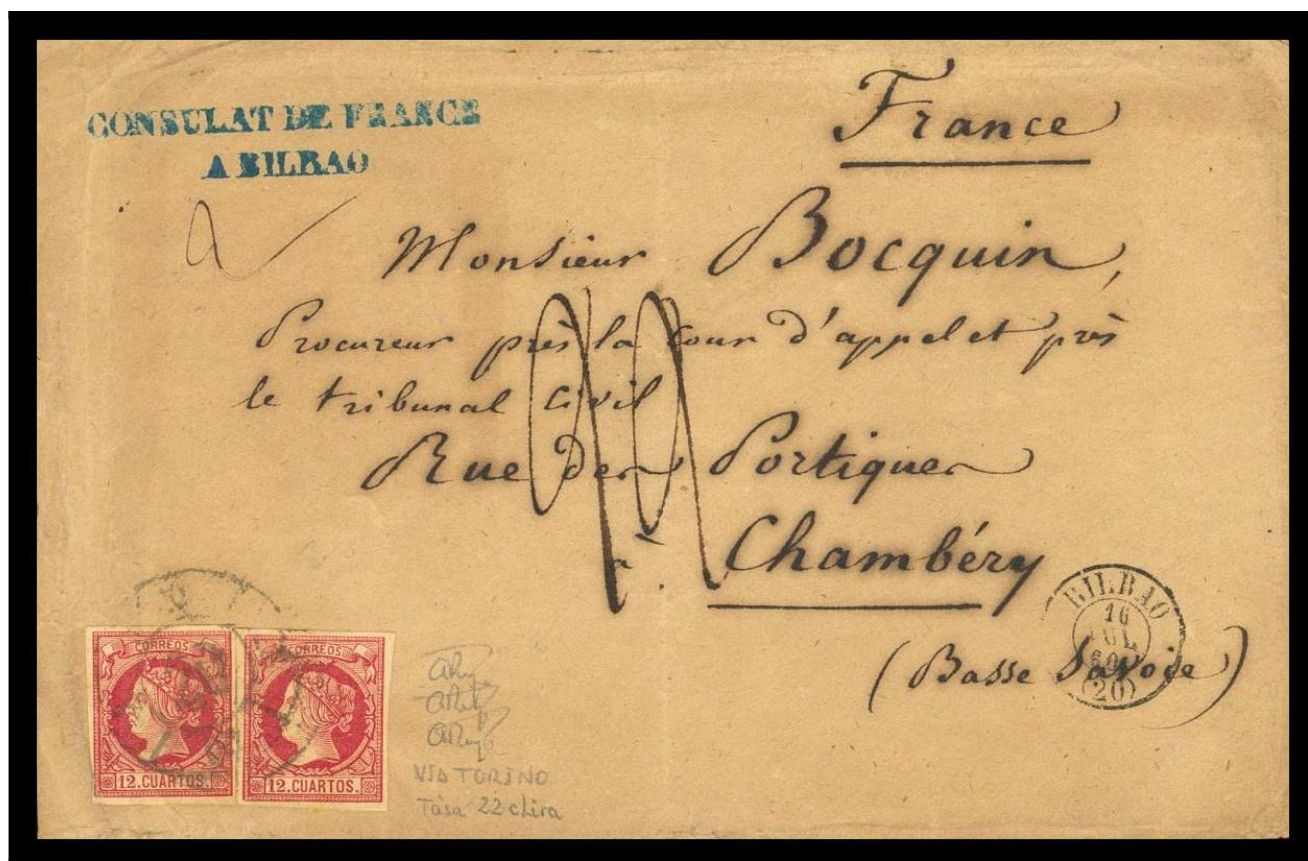 CONSULAT DE FRANCE
A BILBAO
France
Monsieur Bocquin,
Procureur près la Cour d'appel et près
le tribunal Civil
Rue des Portiques
à Chambéry
(Basse Savoie)
BILBAO
16
JUL
60
(20)
CORREOS
12.CUARTOS.
CORREOS
12.CUARTOS.
VIA TORINO
Tasa 22 c lira